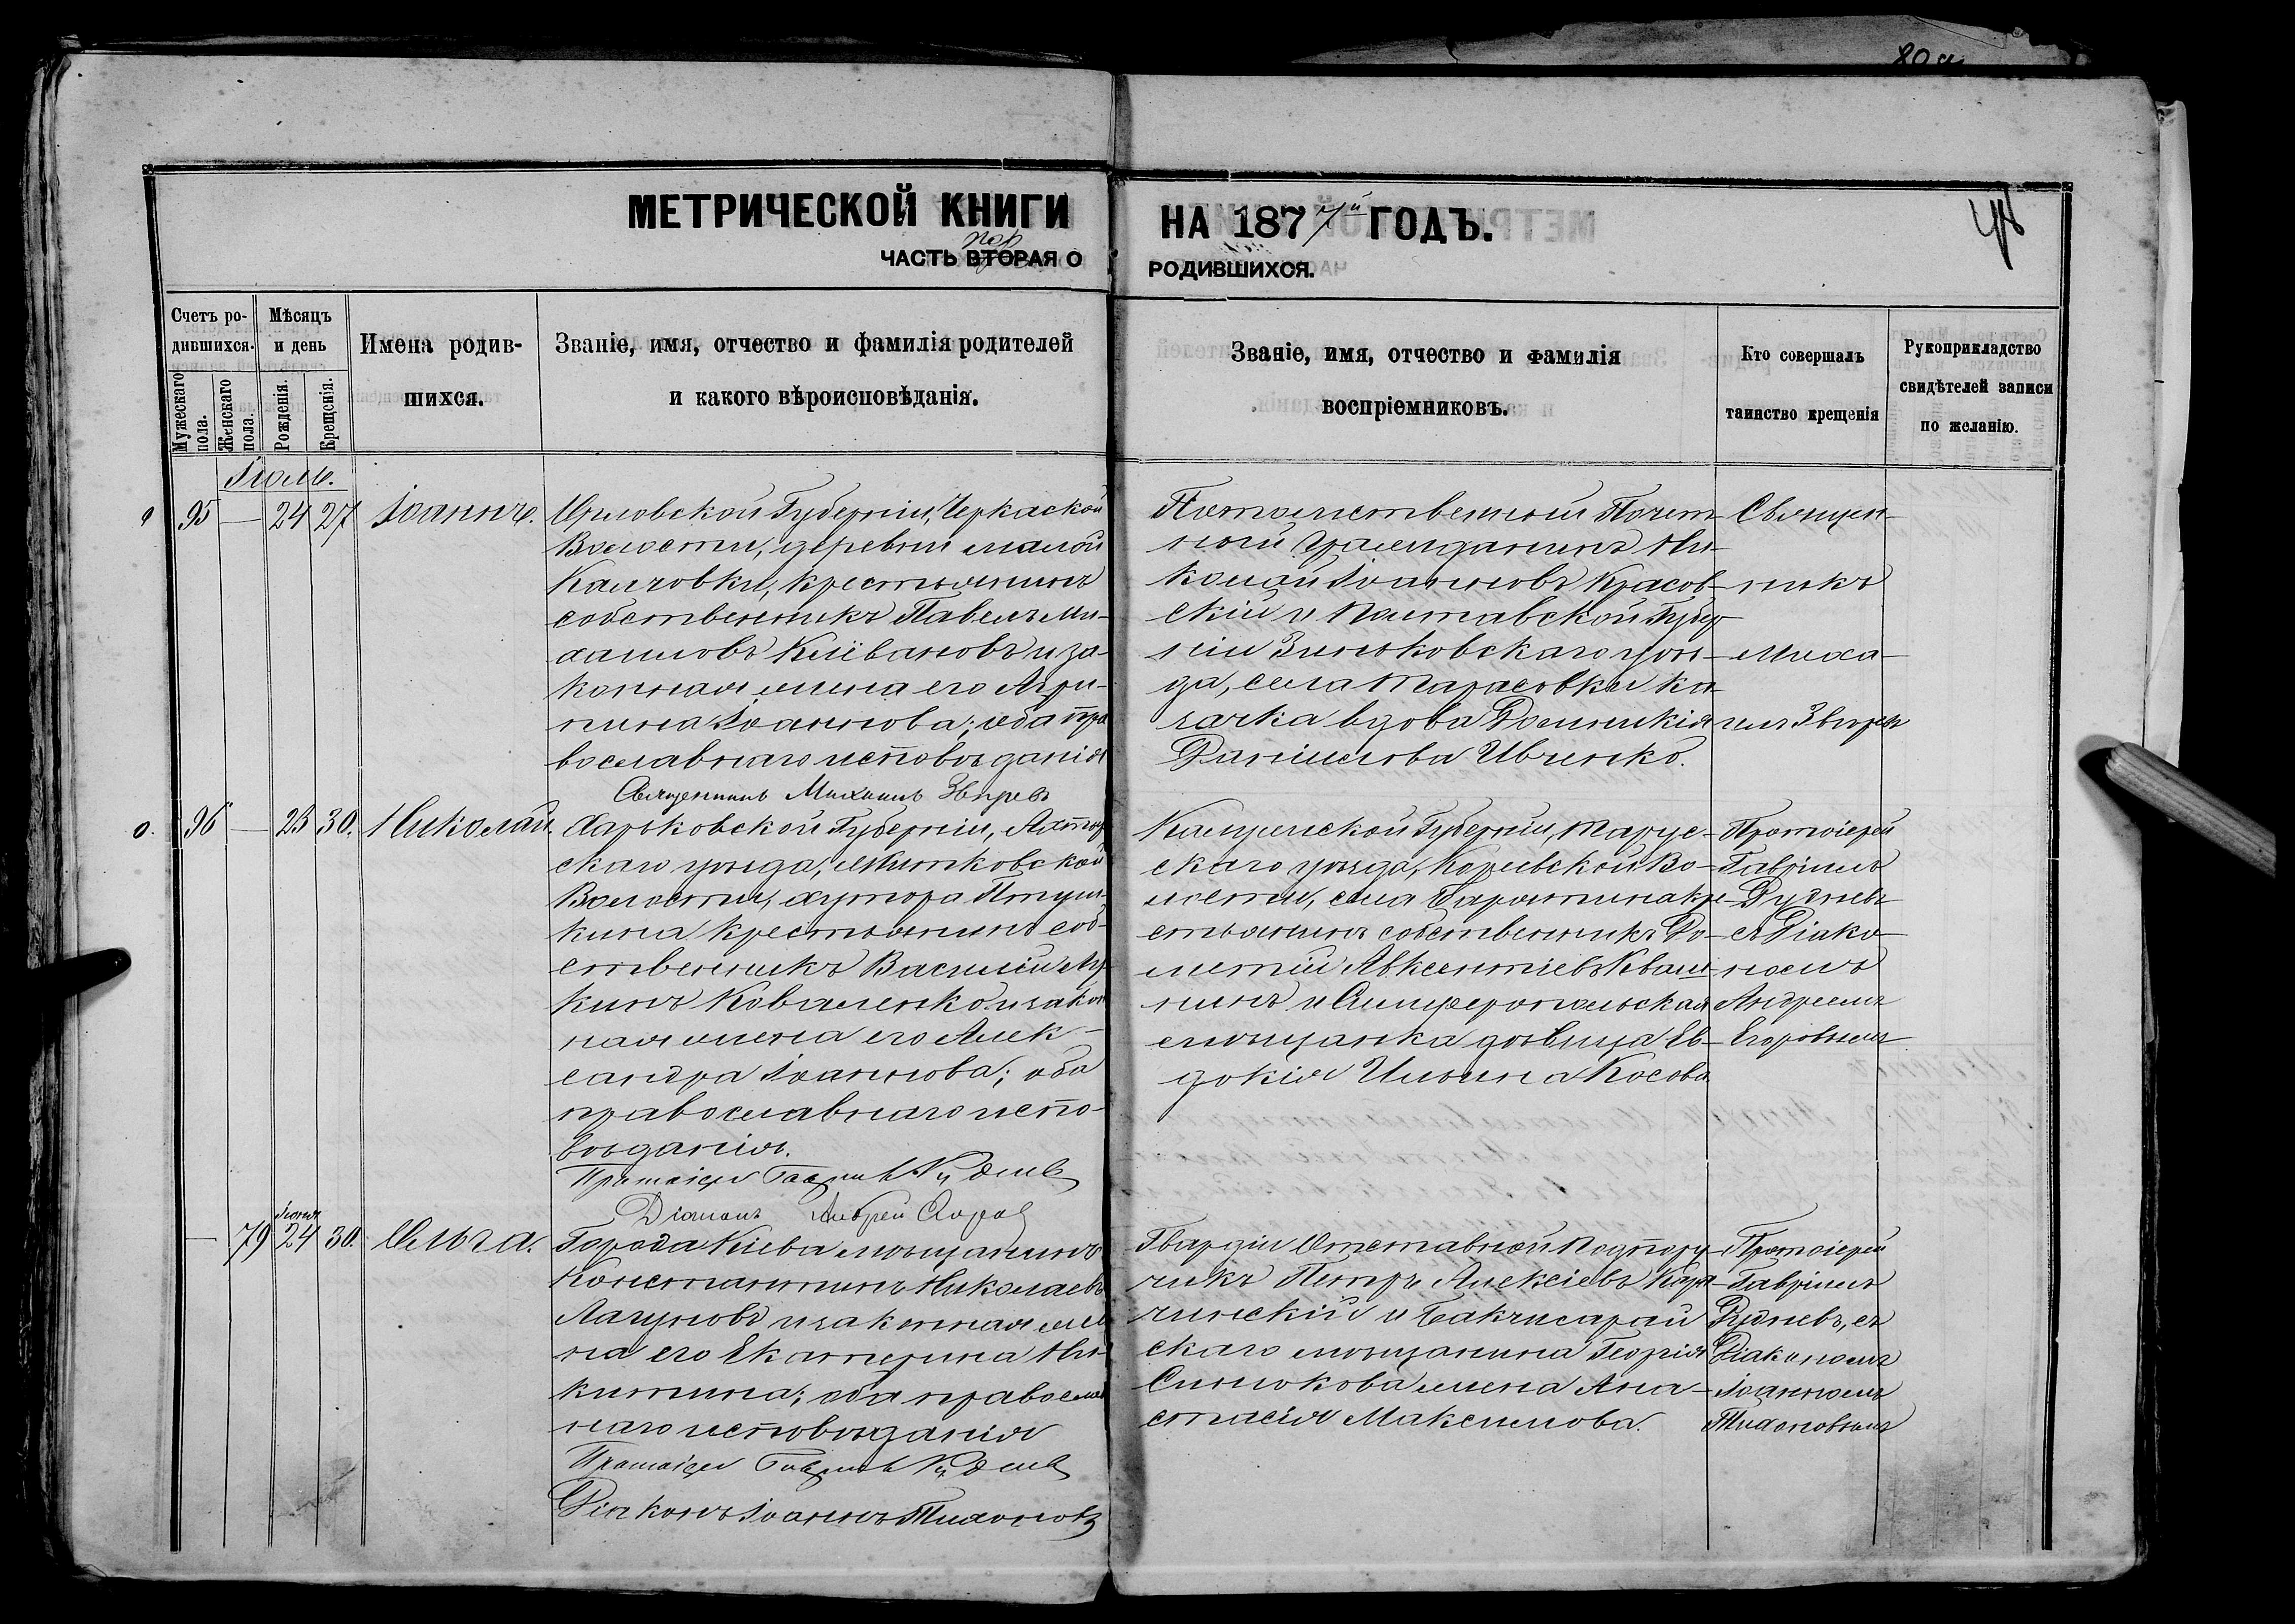 МЕТРИЧЕСКОЙ КНИГИ
НА 1877й ГОДЪ.
ЧАСТЬ ВТОРАЯ О
пер
РОДИВШИХСЯ.
Счетъ родившихся.
Мужескаго пола.
Женскаго пола.
Мѣсяцъ и день
Рожденія.
Крещенія.
Имена родив-
шихся.
Званіе, имя, отчество и фамилія родителей
и какого вѣроисповѣданія.
Званіе, имя, отчество и фамилія
воспріемниковъ.
Кто совершалъ
таинство крещенія
Рукоприкладство
свидѣтелей записи
по желанію.
Іюль.
95 — 24 27 Іоаннъ.
Орловской Губерніи, Черкаской
Волости, деревни малой
Калчовки, крестьянинъ
собственникъ Павелъ Ми-
хаиловъ Кліевановъ и за-
конная жена его Агри-
пина Іоаннова; оба пра
вославнаго исповѣданія
Священникъ Михаилъ Звѣревъ
Потомственный Почет-
ный Гражданинъ Ни-
колай Іоанновъ Красов-
скій и Полтавской Губер
ніи Зиньковскаго уѣз-
да, села Тарасовки ка
зачка вдова Домникія
Даніилова Ивченко.
Священ-
никъ
Миха-
илъ Звѣревъ
96 — 25 30. Николай.
Харьковской Губерніи, Ахтыр
скаго уѣзда,
Волости, хутора
кина крестьянинъ соб-
ственникъ Василій Лу-
кинъ Коваленко и закон
ная жена его Алек-
сандра Іоаннова; оба
православнаго испо-
вѣданія.
Протоіерей Гавріилъ Рудневъ
Діаконъ Андрей
Калужской Губерніи, Тарус-
скаго уѣзда, Во-
лости, села Барятина кре-
стьянинъ собственникъ До-
метій Авксентіевъ Кваш
нинъ и Симферопольская
мѣщанка дѣвица Ев-
докія Ильина Косова
Протоіерей
Гавріилъ
Рудневъ
съ Діако-
номъ
Андреемъ
Егоровымъ
— 79 Іюня 24 30. Ольга.
Города Кіева мѣщанинъ
Константинъ Николаевъ
Лагуновъ и законная же
на его Екатерина Ни-
китина; оба правосла
наго исповѣданія
Протоіерей Гавріилъ Рудневъ
Діаконъ Іоаннъ Тихоновъ
Гвардіи Отставной Подпору-
чикъ Петръ Алексіевъ Кара-
чинскій и Бакчисарай
скаго мѣщанина Георгія
Синюкова жена Ана-
стасія Максимова.
Протоіерей
Гавріилъ
Рудневъ, съ
Діакономъ
Іоанномъ
Тихоновымъ